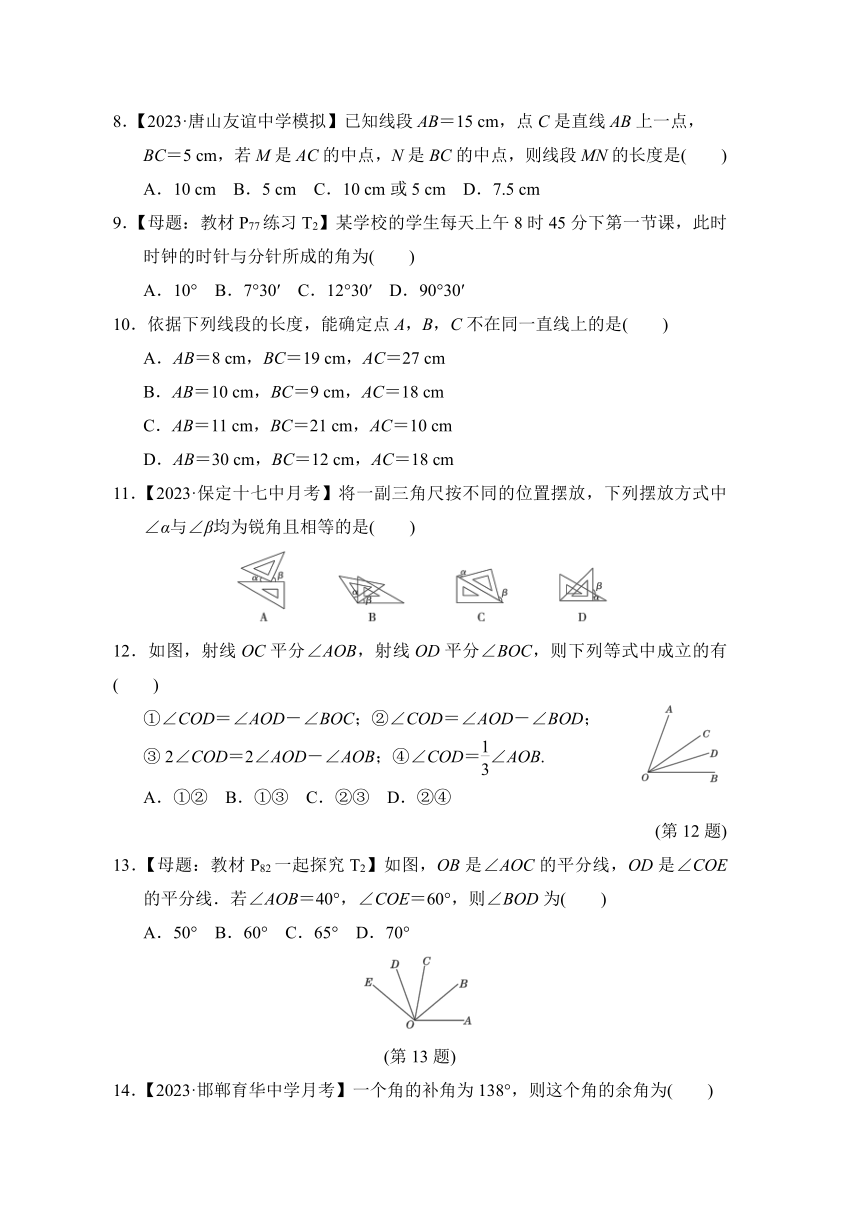 8.【2023·唐山友谊中学模拟】已知线段 AB=15 cm，点 C 是直线 AB 上一点，
BC=5 cm，若 M 是 AC 的中点，N 是 BC 的中点，则线段 MN 的长度是(　　)
A．10 cm　B．5 cm　C．10 cm 或 5 cm　D．7.5 cm
9.【母题：教材 P₇₇ 练习 T₂】某学校的学生每天上午 8 时 45 分下第一节课，此时
时钟的时针与分针所成的角为(　　)
A．10°　B．7°30′　C．12°30′　D．90°30′
10．依据下列线段的长度，能确定点 A，B，C 不在同一直线上的是(　　)
A．AB=8 cm，BC=19 cm，AC=27 cm
B．AB=10 cm，BC=9 cm，AC=18 cm
C．AB=11 cm，BC=21 cm，AC=10 cm
D．AB=30 cm，BC=12 cm，AC=18 cm
11.【2023·保定十七中月考】将一副三角尺按不同的位置摆放，下列摆放方式中
∠α与∠β均为锐角且相等的是(　　)
α β α β α β β α
A B C D
12．如图，射线 OC 平分∠AOB，射线 OD 平分∠BOC，则下列等式中成立的有
(　　)
①∠COD=∠AOD-∠BOC；②∠COD=∠AOD-∠BOD；
③ 2∠COD=2∠AOD-∠AOB；④∠COD=1/3∠AOB.
A．①②　B．①③　C．②③　D．②④
A C D O B
(第 12 题)
13.【母题：教材 P₈₂ 一起探究 T₂】如图，OB 是∠AOC 的平分线，OD 是∠COE
的平分线．若∠AOB=40°，∠COE=60°，则∠BOD 为(　　)
A．50°　B．60°　C．65°　D．70°
D C E B O A
(第 13 题)
14.【2023·邯郸育华中学月考】一个角的补角为 138°，则这个角的余角为(　　)